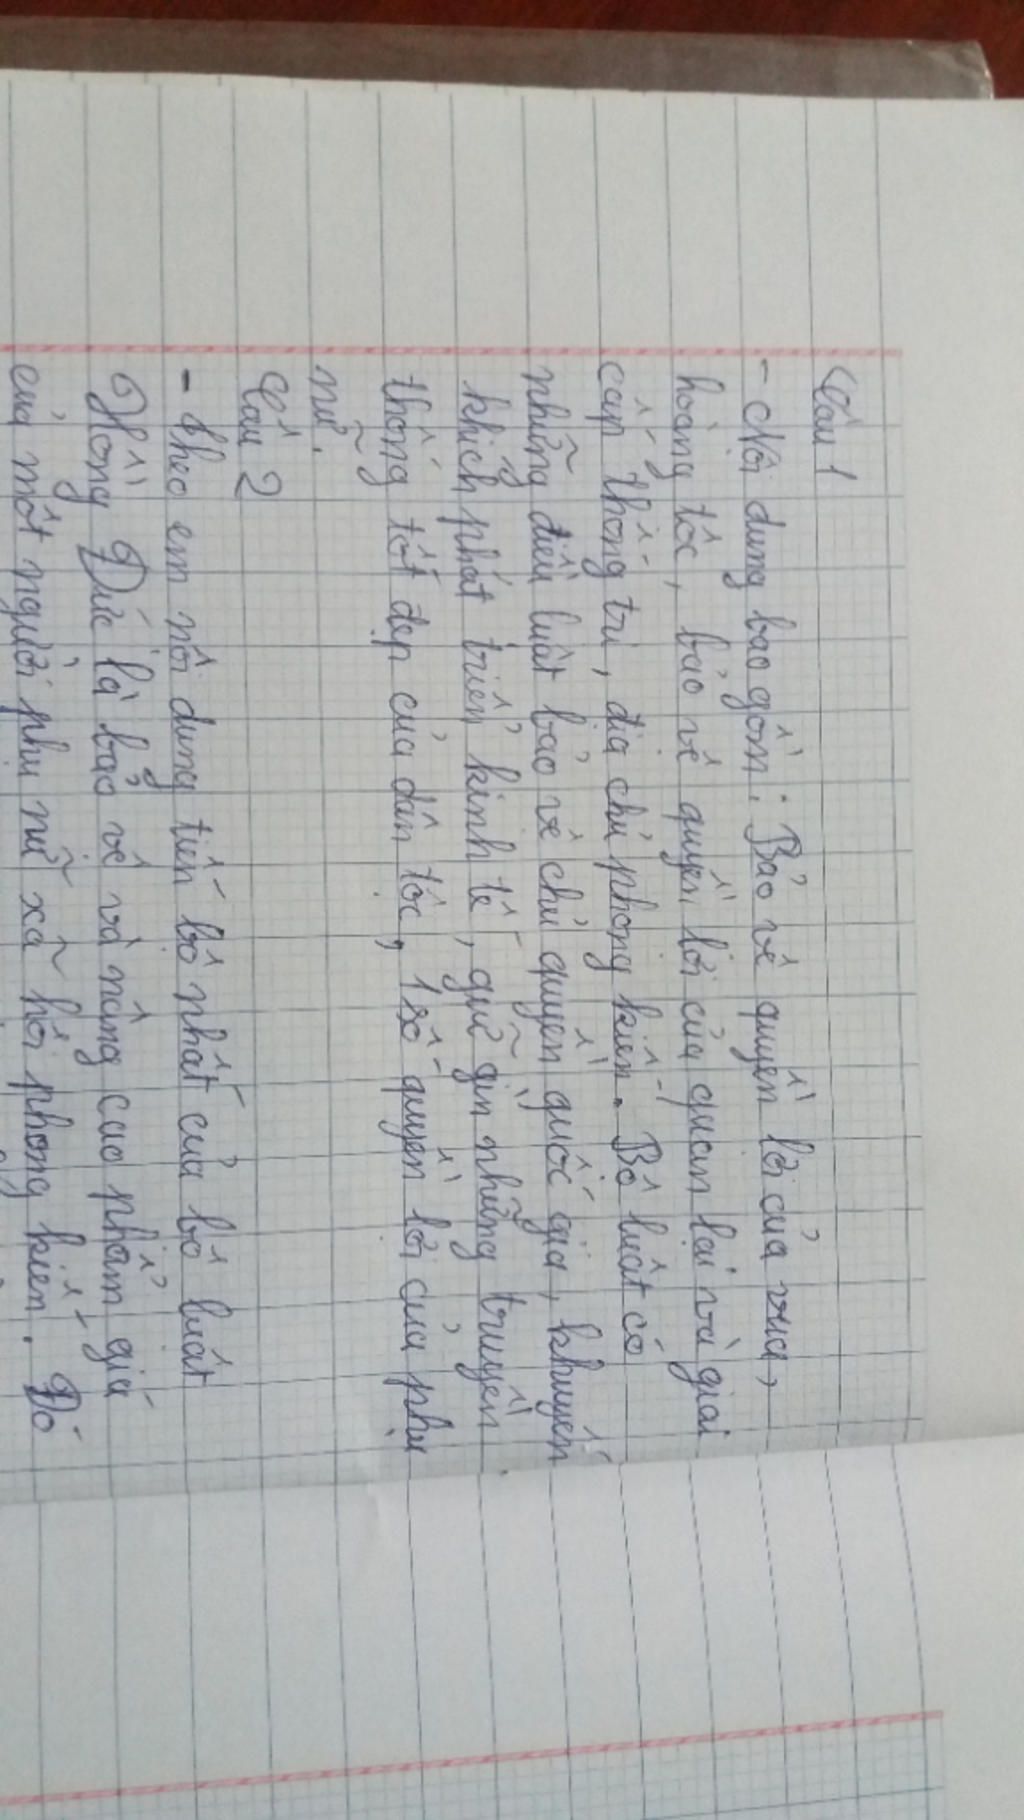 Câu 1
- Nội dung bao gồm: Bảo vệ quyền lợi của vua,
hoàng tộc, bảo vệ quyền lợi của quan lại và giai
cấp thống trị, địa chủ phong kiến. Bộ luật có
những điều luật bảo vệ chủ quyền quốc gia, khuyến
khích phát triển kinh tế, giữ gìn những truyền
thống tốt đẹp của dân tộc, 1 số quyền lợi của phụ
nữ.
Câu 2
- theo em nội dung tiến bộ nhất của bộ luật
Hồng Đức là bảo vệ và nâng cao phẩm giá
của một người phụ nữ xã hội phong kiến. Đó